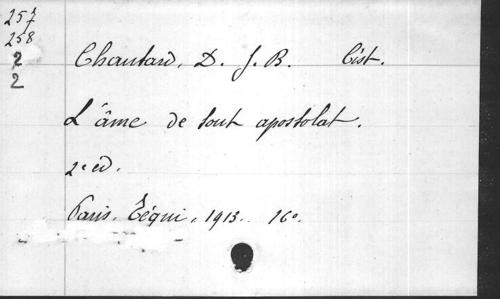 257
258
2
2
Chautard, D. J. B. Cist.
L'âme de tout apostolat.
2e éd.
Paris. Téqui, 1913. 16o.